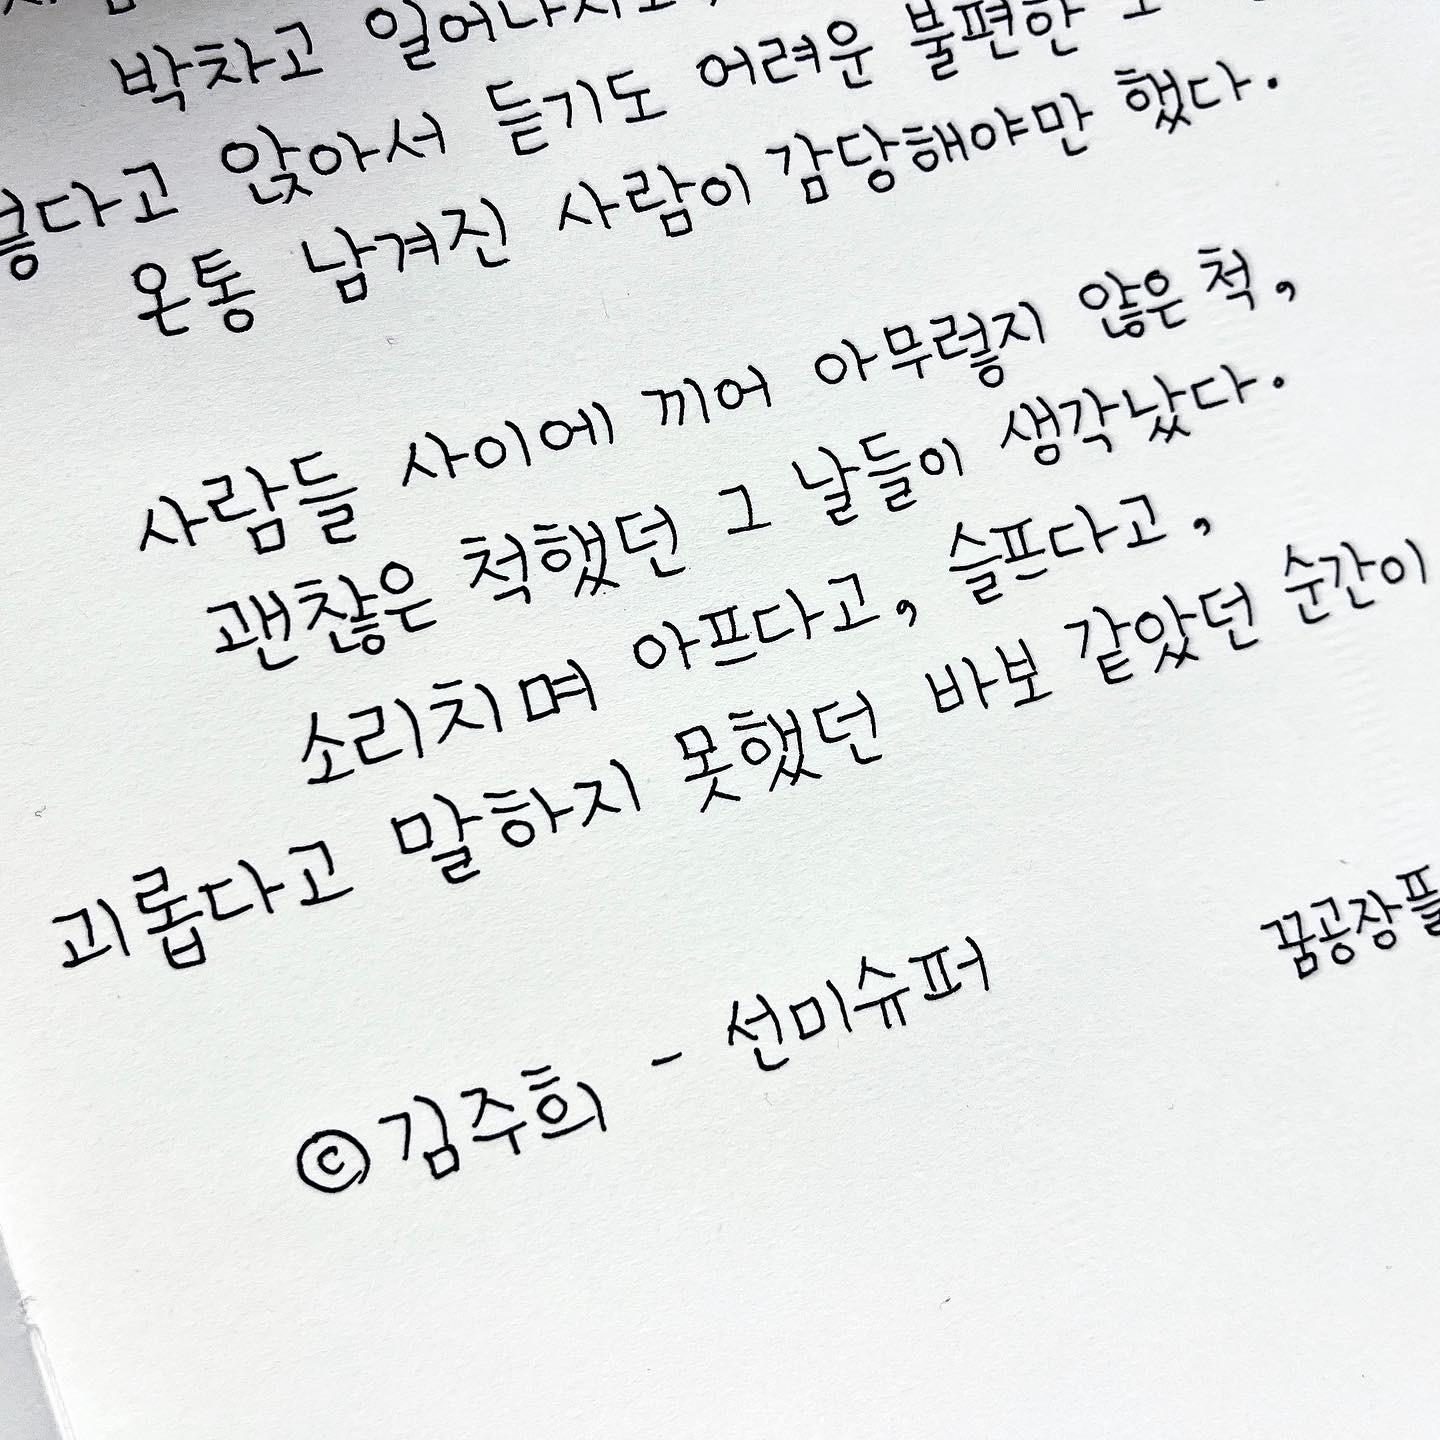 박차고 일어나지도
롭다고 앉아서 듣기도 어려운 불편한
온통 남겨진 사람이 감당해야만 했다.
사람들 사이에 끼어 아무렇지 않은 척,
괜찮은 척했던 그 날들이 생각났다.
소리치며 아프다고, 슬프다고,
괴롭다고 말하지 못했던 바보 같았던 순간이
꿈공장플
ⓒ김주희 - 선미슈퍼